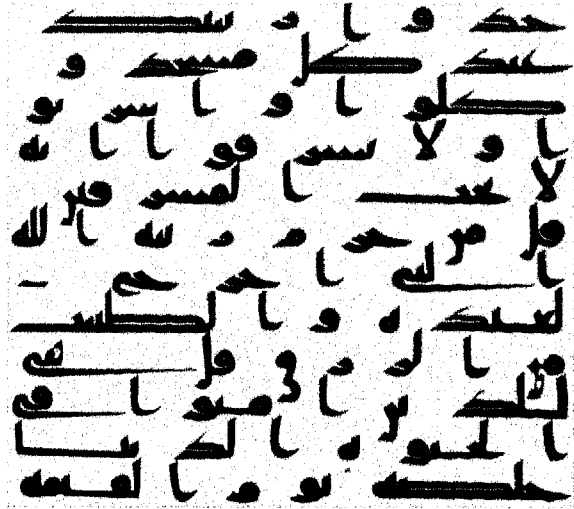 خذوا زينتكم
عند كل مسجد و
كلوا واشربوا
ا ولا تسرفوا انه
لا يحب المسرفين
قل من حرم زينة الله
التي اخرج
لعباده والطيبت
من الرزق قل هي
للذين امنوا في
الحيوة الدنيا
خالصة يوم القيمة